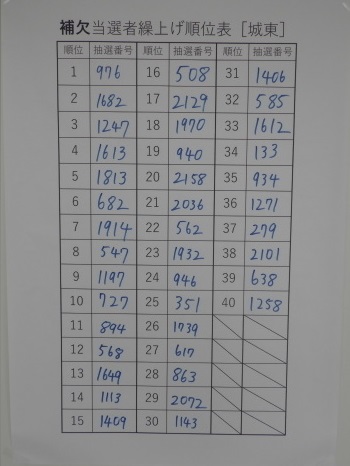 補欠当選者繰上げ順位表［城東］
順位 抽選番号 順位 抽選番号 順位 抽選番号
1 976 16 508 31 1406
2 1682 17 2129 32 585
3 1247 18 1970 33 1612
4 1613 19 940 34 133
5 1813 20 2158 35 934
6 682 21 2036 36 1271
7 1914 22 562 37 279
8 547 23 1932 38 2101
9 1197 24 946 39 638
10 727 25 351 40 1258
11 894 26 1739
12 568 27 617
13 1649 28 863
14 1113 29 2072
15 1409 30 1143